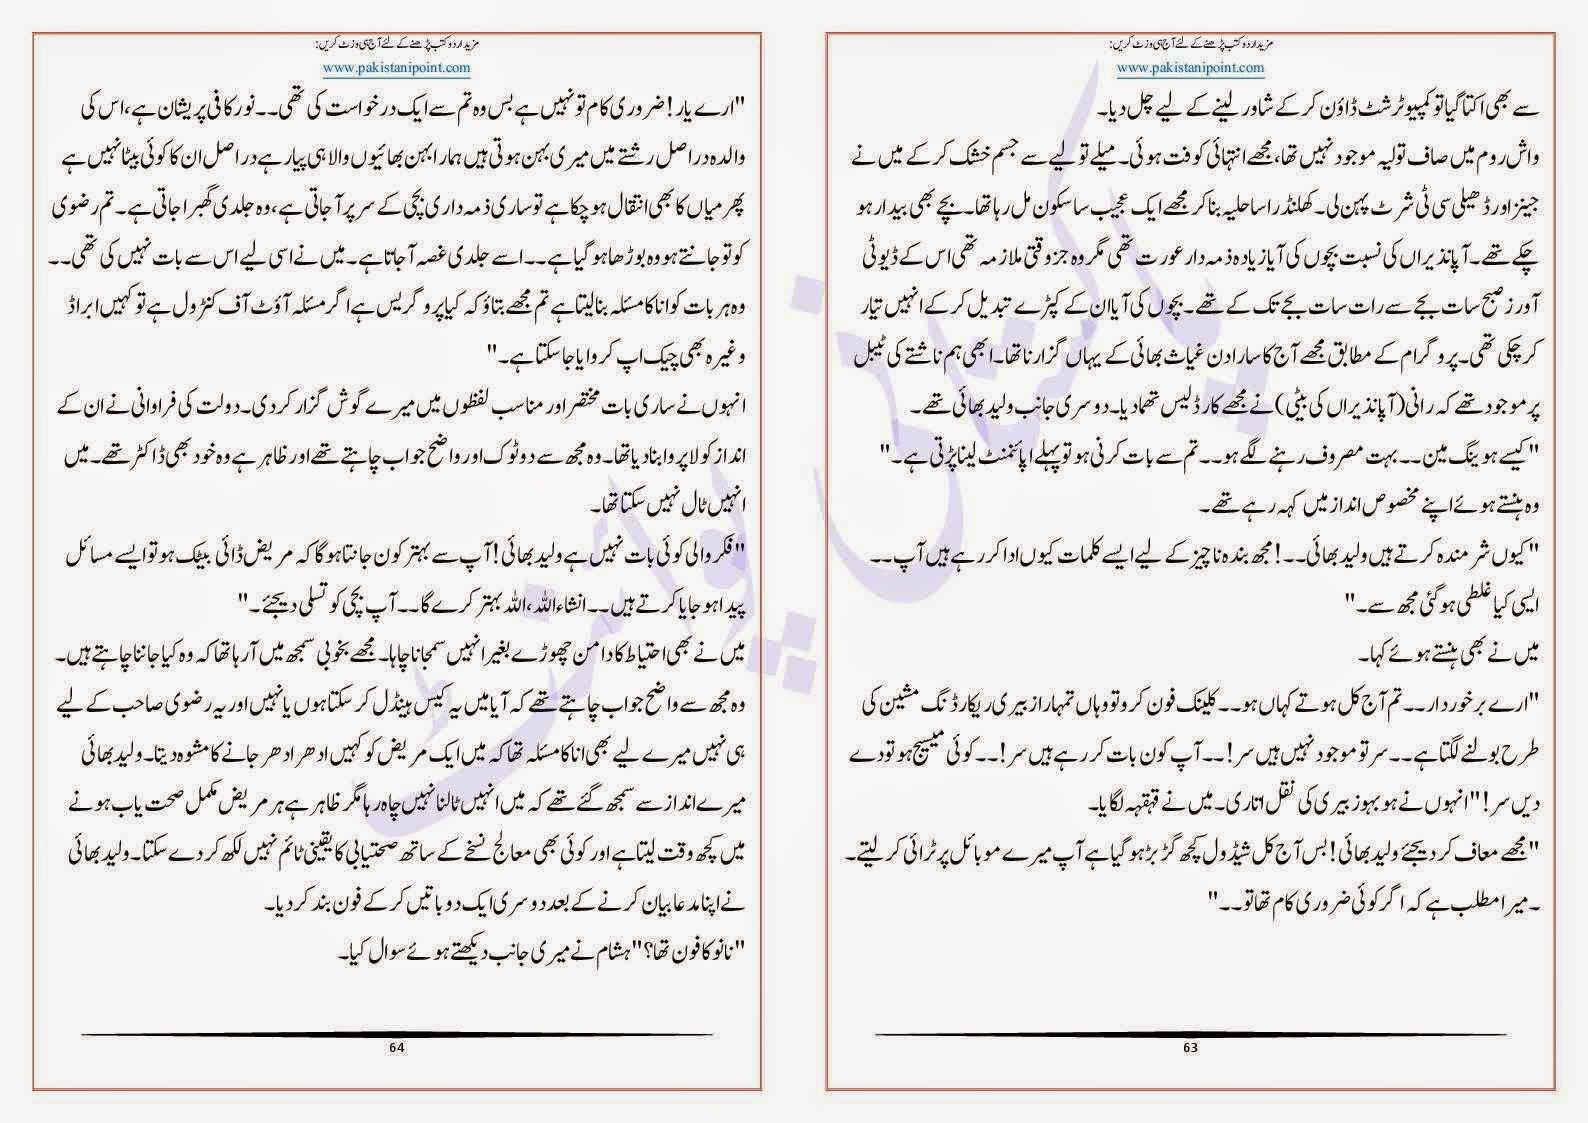 مزید اردو کتب پڑھنے کے لئے آج ہی وزٹ کریں:
www.pakistanipoint.com
سے بھی اکتا گیا تو کمپیوٹر شٹ ڈاؤن کر کے شاور لینے کے لیے چل دیا۔
واش روم میں صاف تولیہ موجود نہیں تھا، مجھے انتہائی کوفت ہوئی۔ میلے تولیے سے جسم خشک کر کے میں نے
جینز اور ڈھیلی سی ٹی شرٹ پہن لی۔ کھلنڈرا سا حلیہ بنا کر مجھے ایک عجیب سا سکون مل رہا تھا۔ بچے بھی بیدار ہو
چکے تھے۔ آپا نذیراں کی نسبت بچوں کی آیا زیادہ ذمہ دار عورت تھی مگر وہ جزوقتی ملازمہ تھی اس کے ڈیوٹی
آورز صبح سات بجے سے رات سات بجے تک کے تھے۔ بچوں کی آیا ان کے کپڑے تبدیل کر کے انہیں تیار
کر چکی تھی۔ پروگرام کے مطابق مجھے آج کا سارا دن غیاث بھائی کے یہاں گزارنا تھا۔ ابھی ہم ناشتے کی ٹیبل
پر موجود تھے کہ رانی (آپا نذیراں کی بیٹی) نے مجھے کارڈلیس تھما دیا۔ دوسری جانب ولید بھائی تھے۔
"کیسے ہو ینگ مین۔۔ بہت مصروف رہنے لگے ہو۔۔ تم سے بات کرنی ہو تو پہلے اپائنمنٹ لینا پڑتی ہے۔"
وہ ہنستے ہوئے اپنے مخصوص انداز میں کہہ رہے تھے۔
"کیوں شرمندہ کرتے ہیں ولید بھائی۔۔! مجھ بندہ ناچیز کے لیے ایسے کلمات کیوں ادا کر رہے ہیں آپ۔۔
ایسی کیا غلطی ہو گئی مجھ سے۔"
میں نے بھی ہنستے ہوئے کہا۔
"ارے برخوردار۔۔ تم آج کل ہوتے کہاں ہو۔۔ کلینک فون کرو تو وہاں تمہارا زبیری ریکارڈنگ مشین کی
طرح بولنے لگتا ہے۔۔ سر تو موجود نہیں ہیں سر!۔۔ آپ کون بات کر رہے ہیں سر!۔۔ کوئی میسیج ہو تو دے
دیں سر!" انہوں نے ہو بہو زبیری کی نقل اتاری۔ میں نے قہقہہ لگایا۔
"مجھے معاف کر دیجئے ولید بھائی! بس آج کل شیڈول کچھ گڑبڑ ہو گیا ہے آپ میرے موبائل پر ٹرائی کر لیتے۔
۔ میرا مطلب ہے کہ اگر کوئی ضروری کام تھا تو۔۔"
63
مزید اردو کتب پڑھنے کے لئے آج ہی وزٹ کریں:
www.pakistanipoint.com
"ارے یار! ضروری کام تو نہیں ہے بس وہ تم سے ایک درخواست کی تھی۔۔ نور کافی پریشان ہے، اس کی
والدہ دراصل رشتے میں میری بہن ہوتی ہیں ہمارا بہن بھائیوں والا ہی پیار ہے دراصل ان کا کوئی بیٹا نہیں ہے
پھر میاں کا بھی انتقال ہو چکا ہے تو ساری ذمہ داری بچی کے سر پر آجاتی ہے، وہ جلدی گھبرا جاتی ہے۔ تم رضوی
کو تو جانتے ہو وہ بوڑھا ہو گیا ہے۔۔ اسے جلدی غصہ آجاتا ہے۔ میں نے اسی لیے اس سے بات نہیں کی تھی۔۔
وہ ہر بات کو انا کا مسئلہ بنا لیتا ہے تم مجھے بتاؤ کہ کیا پروگریس ہے اگر مسئلہ آؤٹ آف کنٹرول ہے تو کہیں ابراڈ
وغیرہ بھی چیک اپ کروایا جا سکتا ہے۔"
انہوں نے ساری بات مختصر اور مناسب لفظوں میں میرے گوش گزار کر دی۔ دولت کی فراوانی نے ان کے
انداز کو لاپروا بنا دیا تھا۔ وہ مجھ سے دوٹوک اور واضح جواب چاہتے تھے اور ظاہر ہے وہ خود بھی ڈاکٹر تھے۔ میں
انہیں ٹال نہیں سکتا تھا۔
"فکر والی کوئی بات نہیں ہے ولید بھائی! آپ سے بہتر کون جانتا ہو گا کہ مریض ڈائی بیٹک ہو تو ایسے مسائل
پیدا ہو جایا کرتے ہیں۔۔ انشاءاللہ، اللہ بہتر کرے گا۔۔ آپ بچی کو تسلی دیجئے۔"
میں نے بھی احتیاط کا دامن چھوڑے بغیر انہیں سمجانا چاہا۔ مجھے بخوبی سمجھ میں آرہا تھا کہ وہ کیا جاننا چاہتے ہیں۔
وہ مجھ سے واضح جواب چاہتے تھے کہ آیا میں یہ کیس ہینڈل کر سکتا ہوں یا نہیں اور یہ رضوی صاحب کے لیے
ہی نہیں میرے لیے بھی انا کا مسئلہ تھا کہ میں ایک مریض کو کہیں ادھر ادھر جانے کا مشوہ دیتا۔ ولید بھائی
میرے انداز سے سمجھ گئے تھے کہ میں انہیں ٹالنا نہیں چاہ رہا مگر ظاہر ہے ہر مریض مکمل صحت یاب ہونے
میں کچھ وقت لیتا ہے اور کوئی بھی معالج نسخے کے ساتھ صحتیابی کا یقینی ٹائم نہیں لکھ کر دے سکتا۔ ولید بھائی
نے اپنا مدعا بیان کرنے کے بعد دوسری ایک دو باتیں کر کے فون بند کر دیا۔
"نانو کا فون تھا؟" ہشام نے میری جانب دیکھتے ہوئے سوال کیا۔
64
پاکستانی پوائنٹ